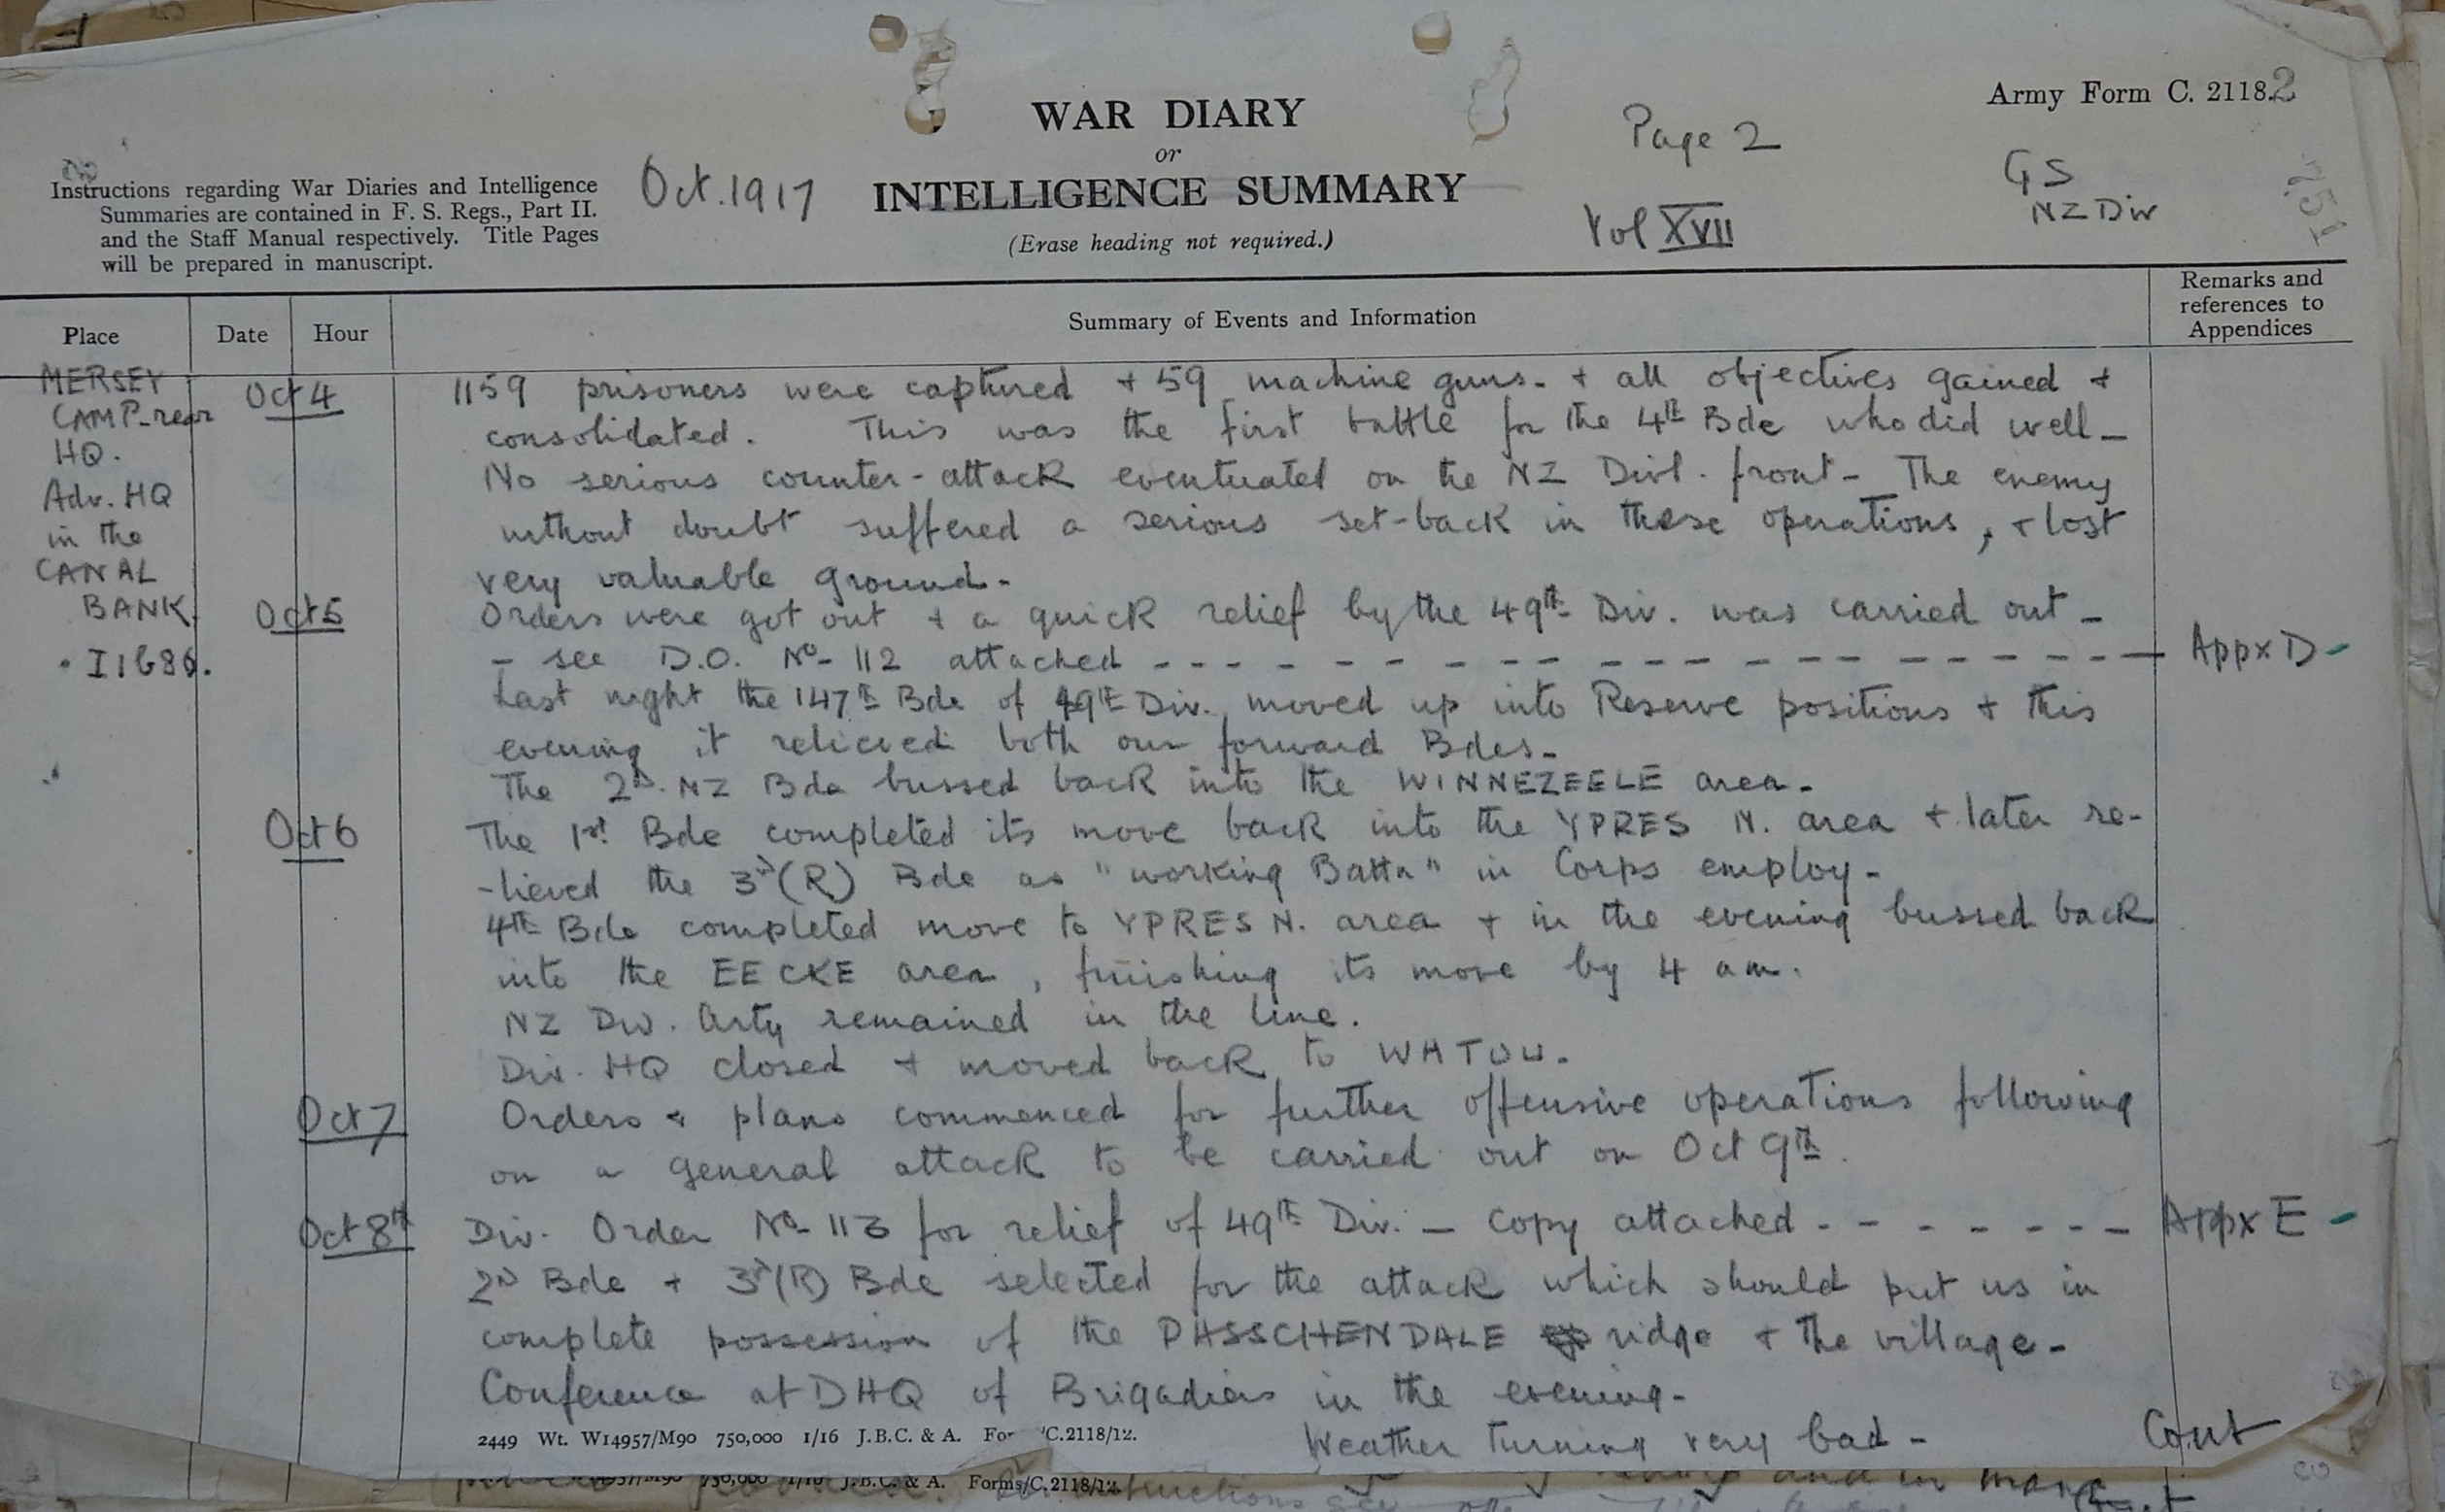 Army Form C. 2118.2
WAR DIARY
or
INTELLIGENCE SUMMARY
(Erase heading not required.)
Instructions regarding War Diaries and Intelligence
Summaries are contained in F. S. Regs., Part II.
and the Staff Manual respectively. Title Pages
will be prepared in manuscript.
Oct. 1917
Page 2
Vol XVII
GS
NZ Div
251
Place
Date
Hour
Summary of Events and Information
Remarks and
references to
Appendices
MERSEY
CAMP-rear
HQ.
Adv. HQ
in the
CANAL
BANK.
Oct 4
1159 prisoners were captured + 59 machine guns - + all objectives gained +
consolidated. This was the first battle for the 4th Bde who did well -
No serious counter-attack eventuated on the NZ Divl. front - The enemy
without doubt suffered a serious set-back in these operations, + lost
very valuable ground -
Oct 5
Orders were got out + a quick relief by the 49th Div. was carried out -
- see D.O. No 112 attached - - - - - - - - - - - - - Appx D -
Last night the 147th Bde of 49th Div. moved up into Reserve positions + this
evening it relieved both our forward Bdes -
The 2nd NZ Bde bussed back into the WINNEZEELE area -
Oct 6
The 1st Bde completed its move back into the YPRES N. area + later re-
-lieved the 3rd (R) Bde as "working Battn" in Corps employ -
4th Bde completed move to YPRES N. area + in the evening bussed back
into the EECKE area, finishing its move by 4 am.
NZ Div. Arty remained in the line.
Div. HQ closed + moved back to WATOU -
Oct 7
Orders & plans commenced for further offensive operations following
on a general attack to be carried out on Oct 9th.
Oct 8th
Div. Order No 113 for relief of 49th Div. - copy attached - - - - - - - Appx E -
2nd Bde + 3rd (R) Bde selected for the attack which should put us in
complete possession of the PASSCHENDALE ridge + the village -
Conference at DHQ of Brigadiers in the evening -
Weather turning very bad -
Cont
2449 Wt. W14957/M90 750,000 1/16 J.B.C. & A. For /C.2118/12.
750,000 1/16 J.B.C. & A. Forms/C.2118/12.